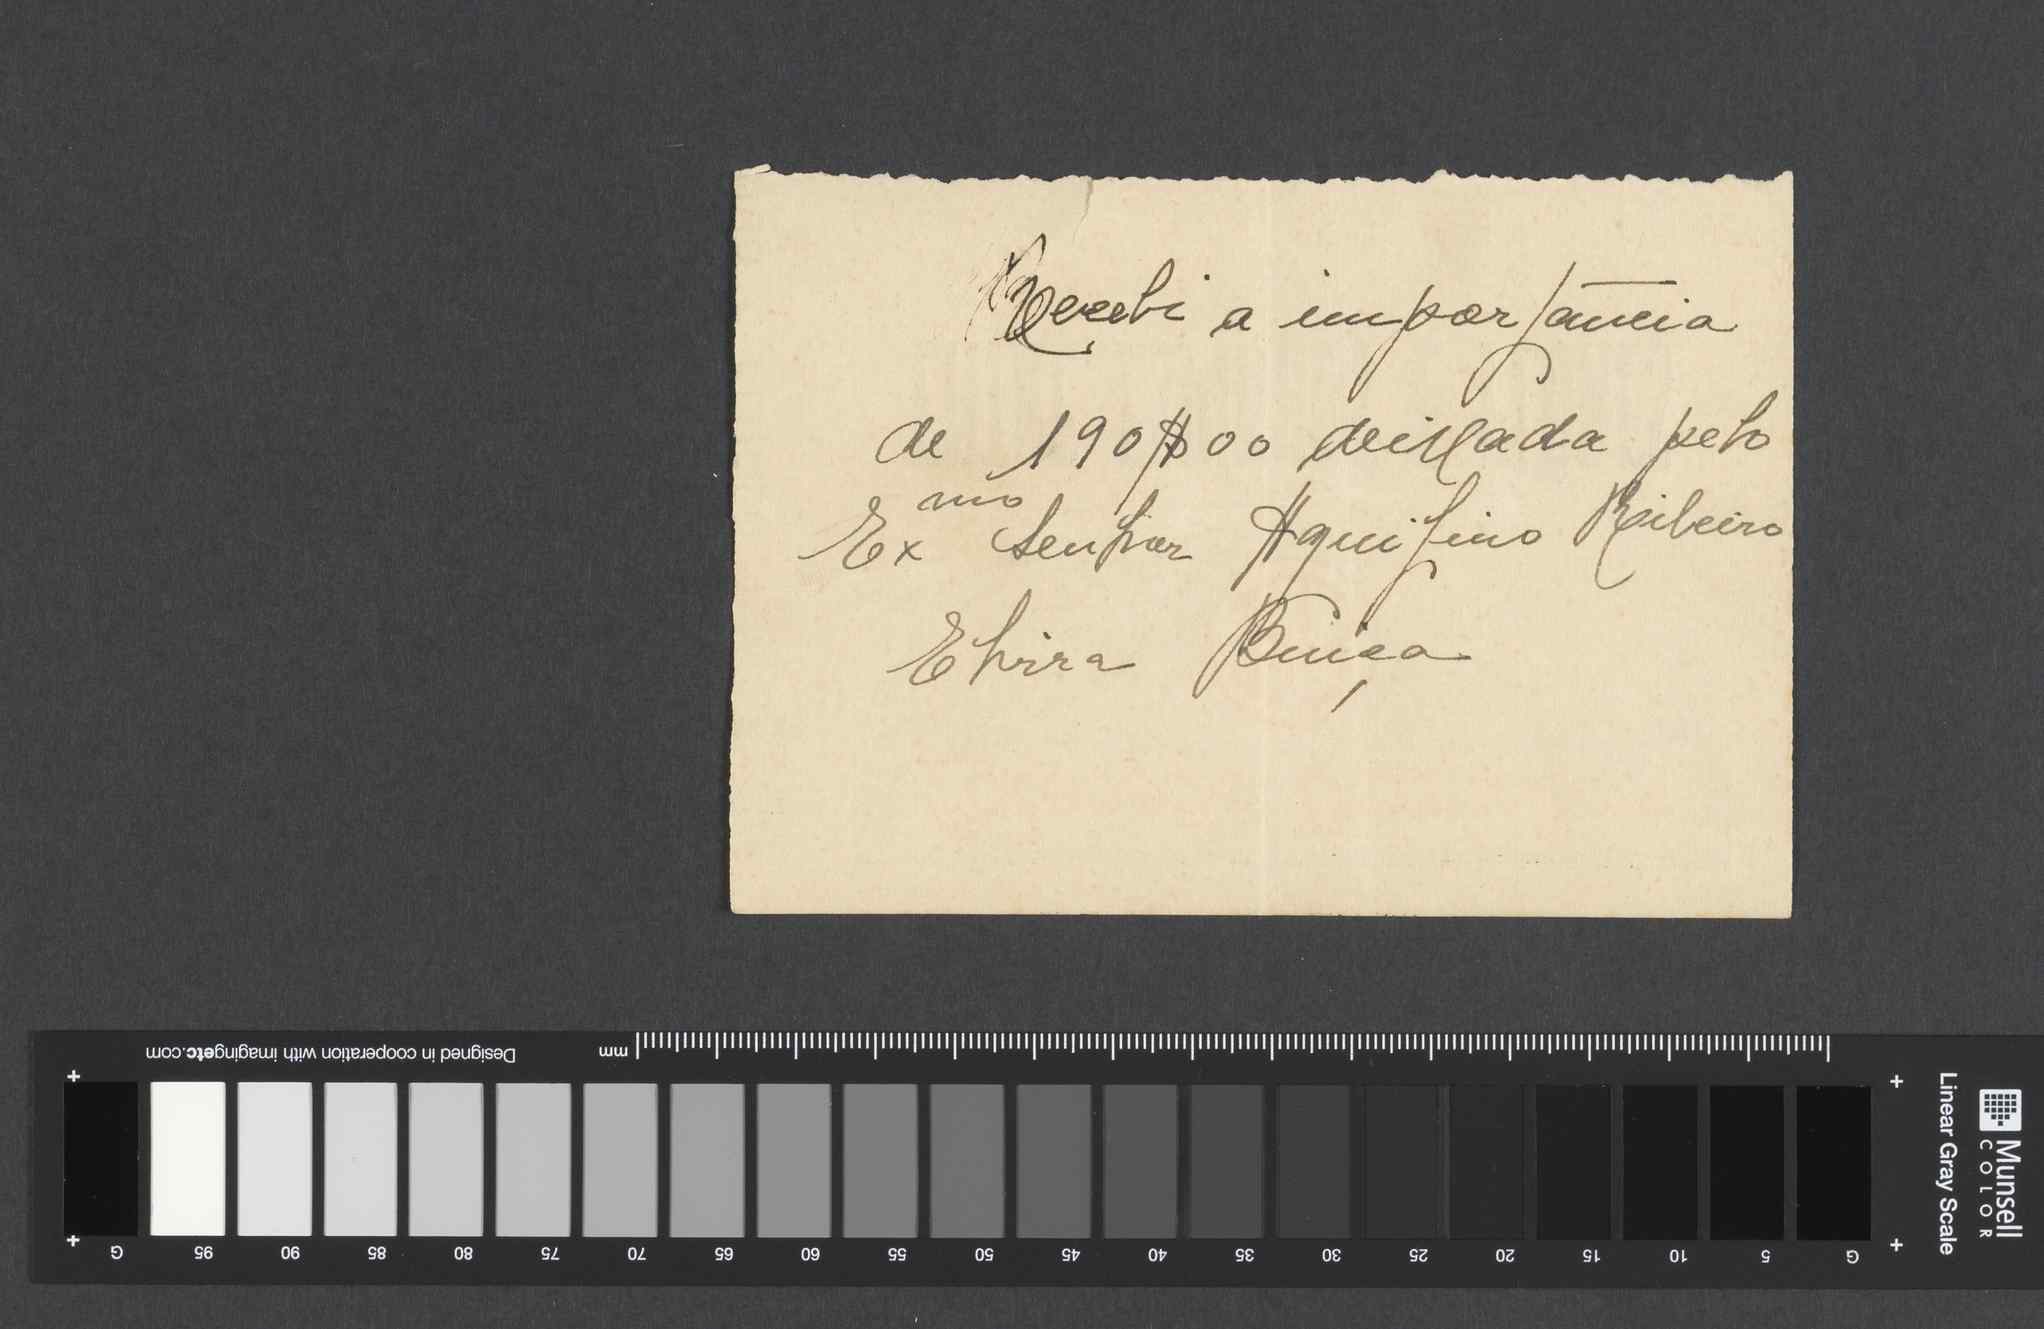 Recebi a importância
de 190$00 deixada pelo
Exmo Senhor Aquilino Ribeiro
Elvira
Designed in cooperation with imagingetc.com
mm
G 95 90 85 80 75 70 65 60 55 50 45 40 35 30 25 20 15 10 5 G
Linear Gray Scale
Munsell
COLOR